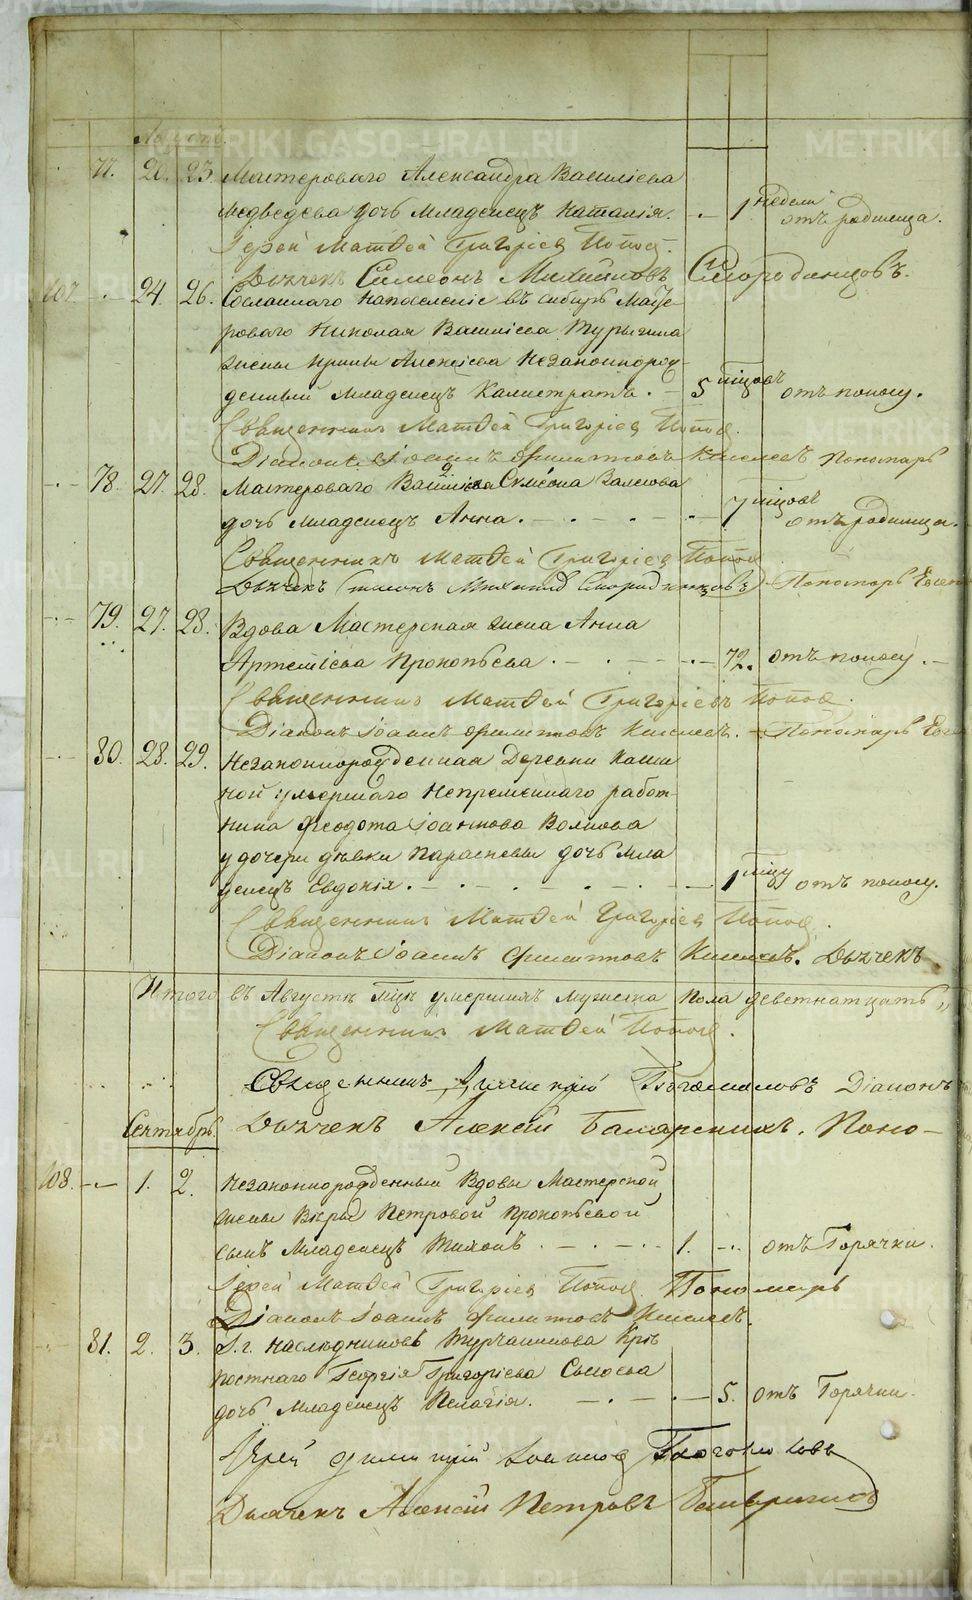 Августъ
77. 20. 23. Мастероваго Александра Васильева
Медведева дочь младенецъ Наталия. 1 недели отъ родимца.
Іерей Матѳей Григоріев Попов.
Дьячекъ Симеонъ Михайловъ Смородинцовъ.
107. 24. 26. Сосланнаго напоселеніе въ сибирь Масте-
роваго Николая Васильева
жены Ирины Алексіева Незаконнорож-
денный младенецъ Калистратъ. 5 мцовъ отъ поносу.
Священникъ Матѳей Григоріев Попов.
Діаконъ Іоаннъ Филиповъ Киселевъ Пономарь
78. 27. 28. Мастероваго Василіева Симеона
дочь младенецъ Анна. 7 мцовъ отъ родимца.
Священникъ Матѳей Григоріев Попов
Дьячекъ Симеонъ Михайлов Смородинцовъ Пономарь
79. 27. 28. Вдова Мастерская жена Анна
Артеміева Прокопьева. 72. отъ поносу.
Священникъ Матѳей Григоріевъ Попов.
Діаконъ Іоаннъ Филиповъ Киселевъ. Пономарь
80. 28. 29. Незаконнорожденная Деревни
ной умершаго Непременнаго работ-
ника Феодота Іоаннова Волкова
у дочери девки Парасковьи дочь мла
денецъ Евдокія. 1 мцу отъ поносу.
Священникъ Матѳей Григоріев Попов.
Діаконъ Іоаннъ Филиповъ Киселевъ. Дьячекъ
Итого въ Августе мце умершихъ мужеска пола деветнатцать
Священникъ Матѳей Попов.
Священникъ Діаконъ
Сентябрь Дьячекъ Алексій Поно-
108. 1. 2. Незаконнорожденный Вдовы Мастерской
жены Веры Петровой Прокопьевой
сынъ младенецъ Тихонъ 1. отъ Горячки.
Іерей Матѳей Григоріев Попов. Пономарь
Діаконъ Іоаннъ Филиповъ Киселевъ.
81. 2. 3. Г. г. наследниковъ Турчанинова Кре
постнаго Георгія Григоріева Сысоева
дочь младенецъ Пелагія. 5. отъ Горячки.
Іерей
Дьячекъ Алексій Петровъ